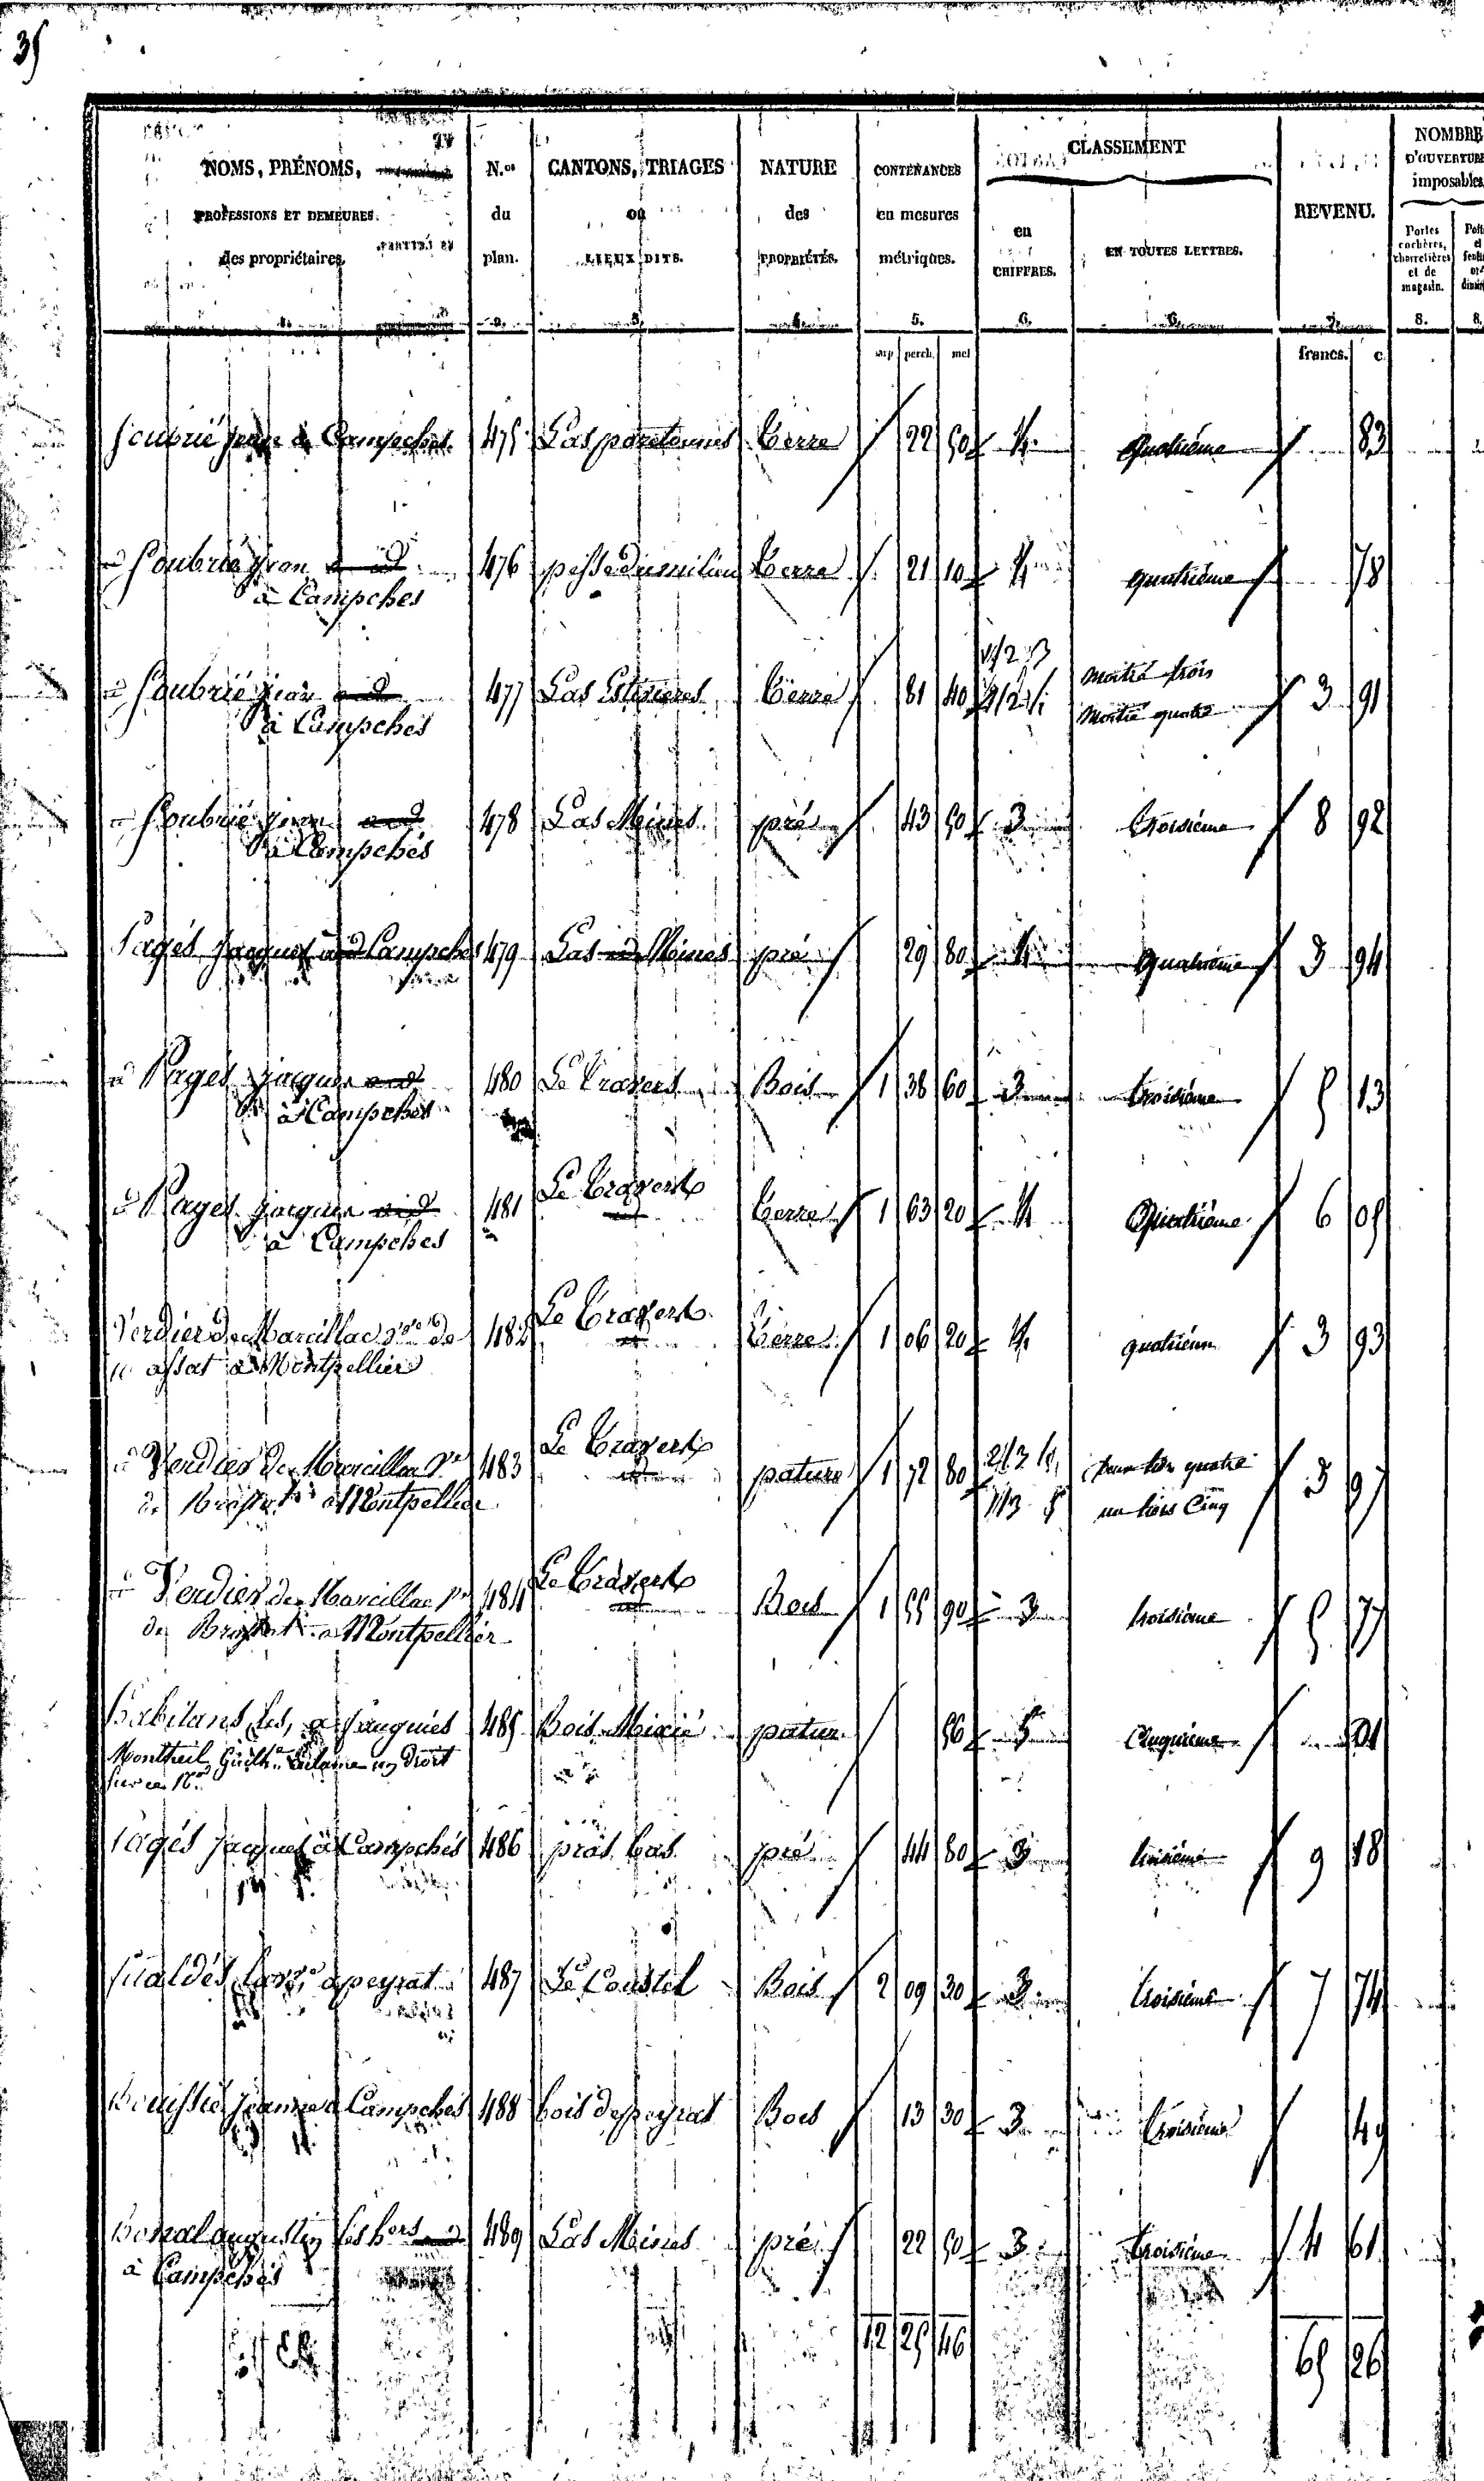 35
NOMS, PRÉNOMS,
PROFESSIONS ET DEMEURES
des propriétaires.
N.os
du
plan.
CANTONS, TRIAGES
ou
LIEUX DITS.
NATURE
des
PROPRIÉTÉS.
CONTENANCES
en mesures
métriques.
CLASSEMENT
en
CHIFFRES.
EN TOUTES LETTRES.
REVENU.
NOMBRE
D'OUVERTURE
imposables
Portes
cochères,
charretières
et de
magasin.
1. 2. 3. 4. 5. 6. 6. 7. 8. 8.
arp perch. met francs. c.
Soubrié jean à Campches 475 Las paretennes terre 22 50 4 quatrième 83
Soubrié jean 476 terre 21 10 4 quatrième 78
à Campches
Soubrié jean 477 terre 81 40 1/2 3 moitié trois 3 91
à Campches 1/2 4 moitié quatre
Soubrié jean 478 Las Meines pré 43 50 3 troisième 8 92
à Campchés
Pagés jacques Campches 479 Las Meines pré 29 80 4 quatrième 3 94
Pagés jacques 480 Le Travers Bois 1 38 60 3 troisième 5 13
à Campches
Pages jacques 481 Le Travers terre 1 63 20 4 Quatrième 6 05
à Campches
Verdier de Marcillac 482 Le Travers terre 1 06 20 4 quatrième 3 93
à Montpellier
Verdier de Marcillac 483 Le Travers pature 1 72 80 2/3 4 Deux tiers quatre 3 97
de à Montpellier 1/3 5 un tiers Cinq
Verdier de Marcillac 484 Le Travers Bois 1 55 90 3 troisième 5 77
de à Montpellier
habitans, les, a 485 Bois Mixié pature 56 5 Cinquième 01
Montheil Droit
sur ce
Pagés jacques à Campchés 486 prâs bas pré 44 80 3 troisième 9 18
a peyrat 487 Le Coustel Bois 2 09 30 3 troisième 7 74
Bouissié jeanne a Campches 488 bois de peyrat Bois 13 30 3 troisième 49
Bonal augustin ses hers 489 Las Meines pré 22 50 3 troisième 4 61
à Campches
12 25 46 65 26